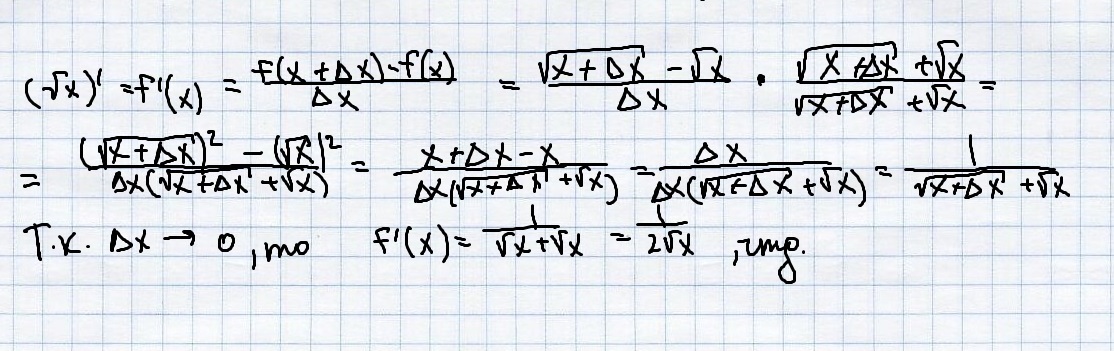 (√x)' = f'(x) = (f(x + Δx) - f(x)) / Δx = (√(x + Δx) - √x) / Δx · (√(x + Δx) + √x) / (√(x + Δx) + √x) =
= ((√(x + Δx))² - (√x)²) / (Δx(√(x + Δx) + √x)) = (x + Δx - x) / (Δx(√(x + Δx) + √x)) = Δx / (Δx(√(x + Δx) + √x)) = 1 / (√(x + Δx) + √x)
Т.к. Δx → 0, то f'(x) = 1 / (√x + √x) = 1 / (2√x), чтд.